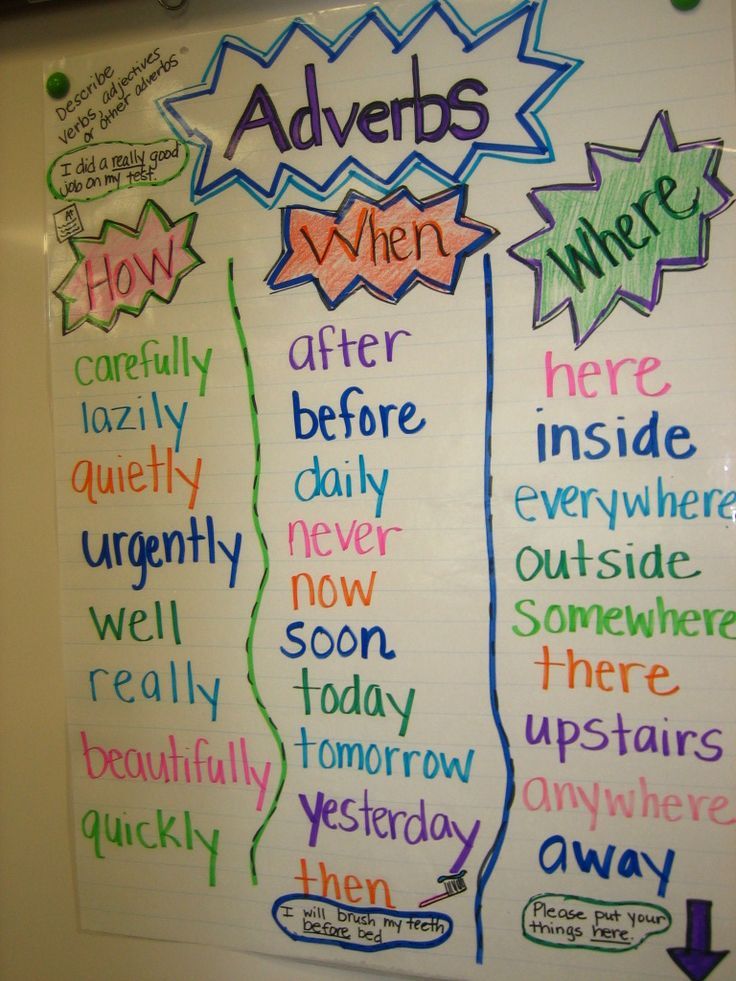 Describe
verbs, adjectives
or other adverbs
I did a really good
job on my test.
A+
Adverbs
How
carefully
lazily
quietly
urgently
well
really
beautifully
quickly
When
after
before
daily
never
now
soon
today
tomorrow
yesterday
then
I will brush my teeth
before bed
Where
here
inside
everywhere
outside
somewhere
there
upstairs
anywhere
away
Please put your
things here.